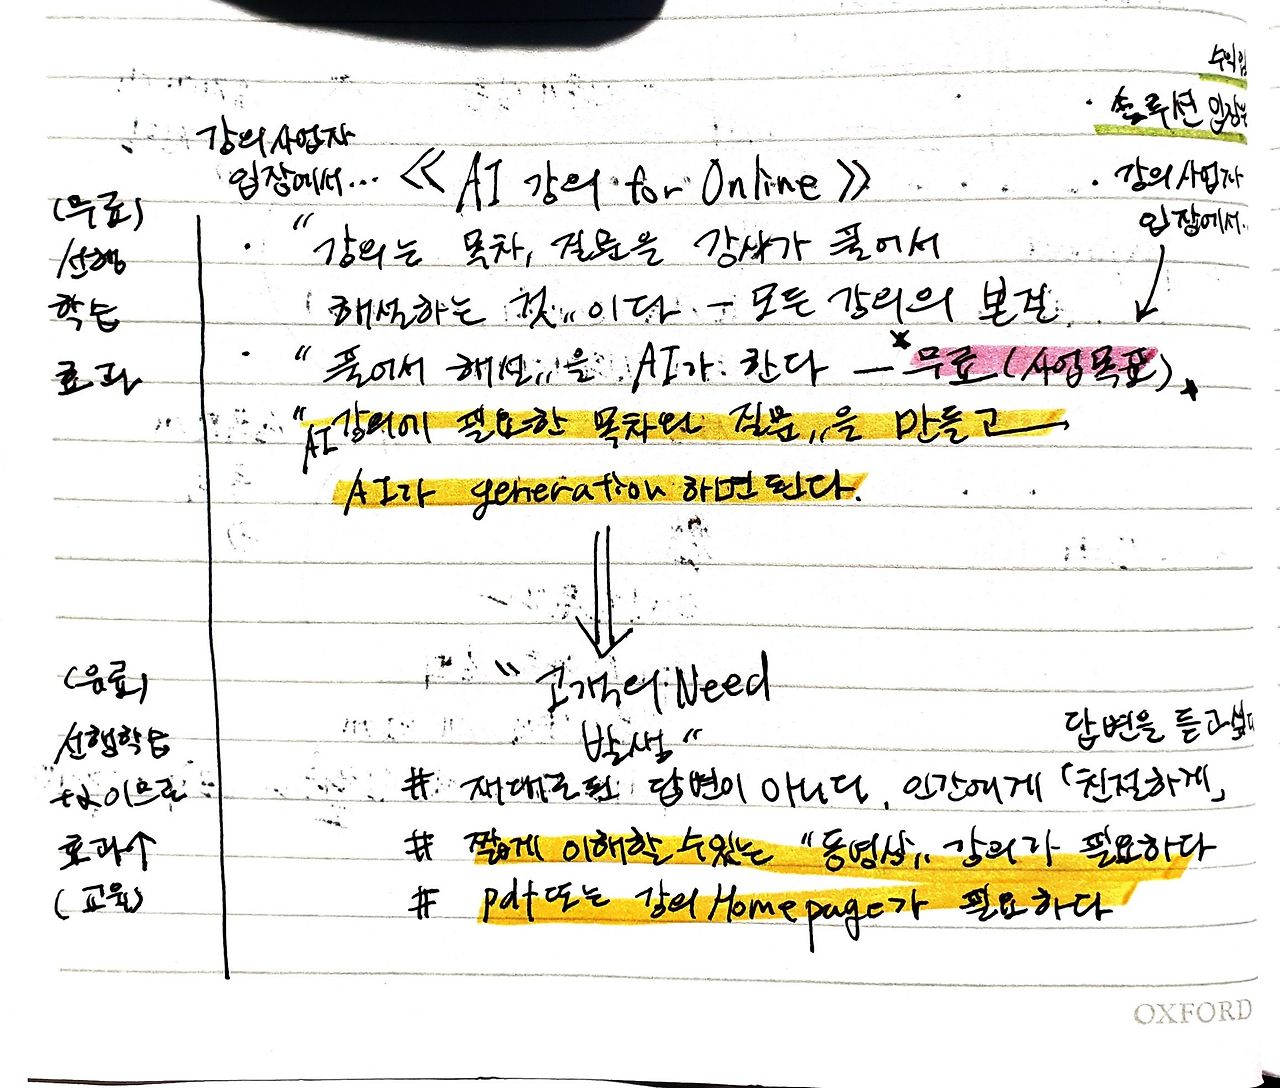 수익
솔루션 입장
강의사업자
입장에서...
《 AI 강의 for Online 》
· 강의사업자
입장에서..
(무료)
선행
학습
효과
· "강의는 목차, 질문을 강사가 풀어서
해설하는 것" 이다 - 모든 강의의 본질
· "풀어서 해설"을 AI가 한다 - * 무료 (사업목표) *
"AI 강의에 필요한 목차와 질문"을 만들고
AI가 generation 하면 된다.
"고객의 Need
발생"
(유료)
선행학습
효과↑
(교육)
답변을 듣고싶다
# 제대로된 답변이 아니다. 인간에게 「친절하게」
# 짧게 이해할 수 있는 "동영상" 강의가 필요하다
# pdf 또는 강의 Homepage가 필요하다
OXFORD